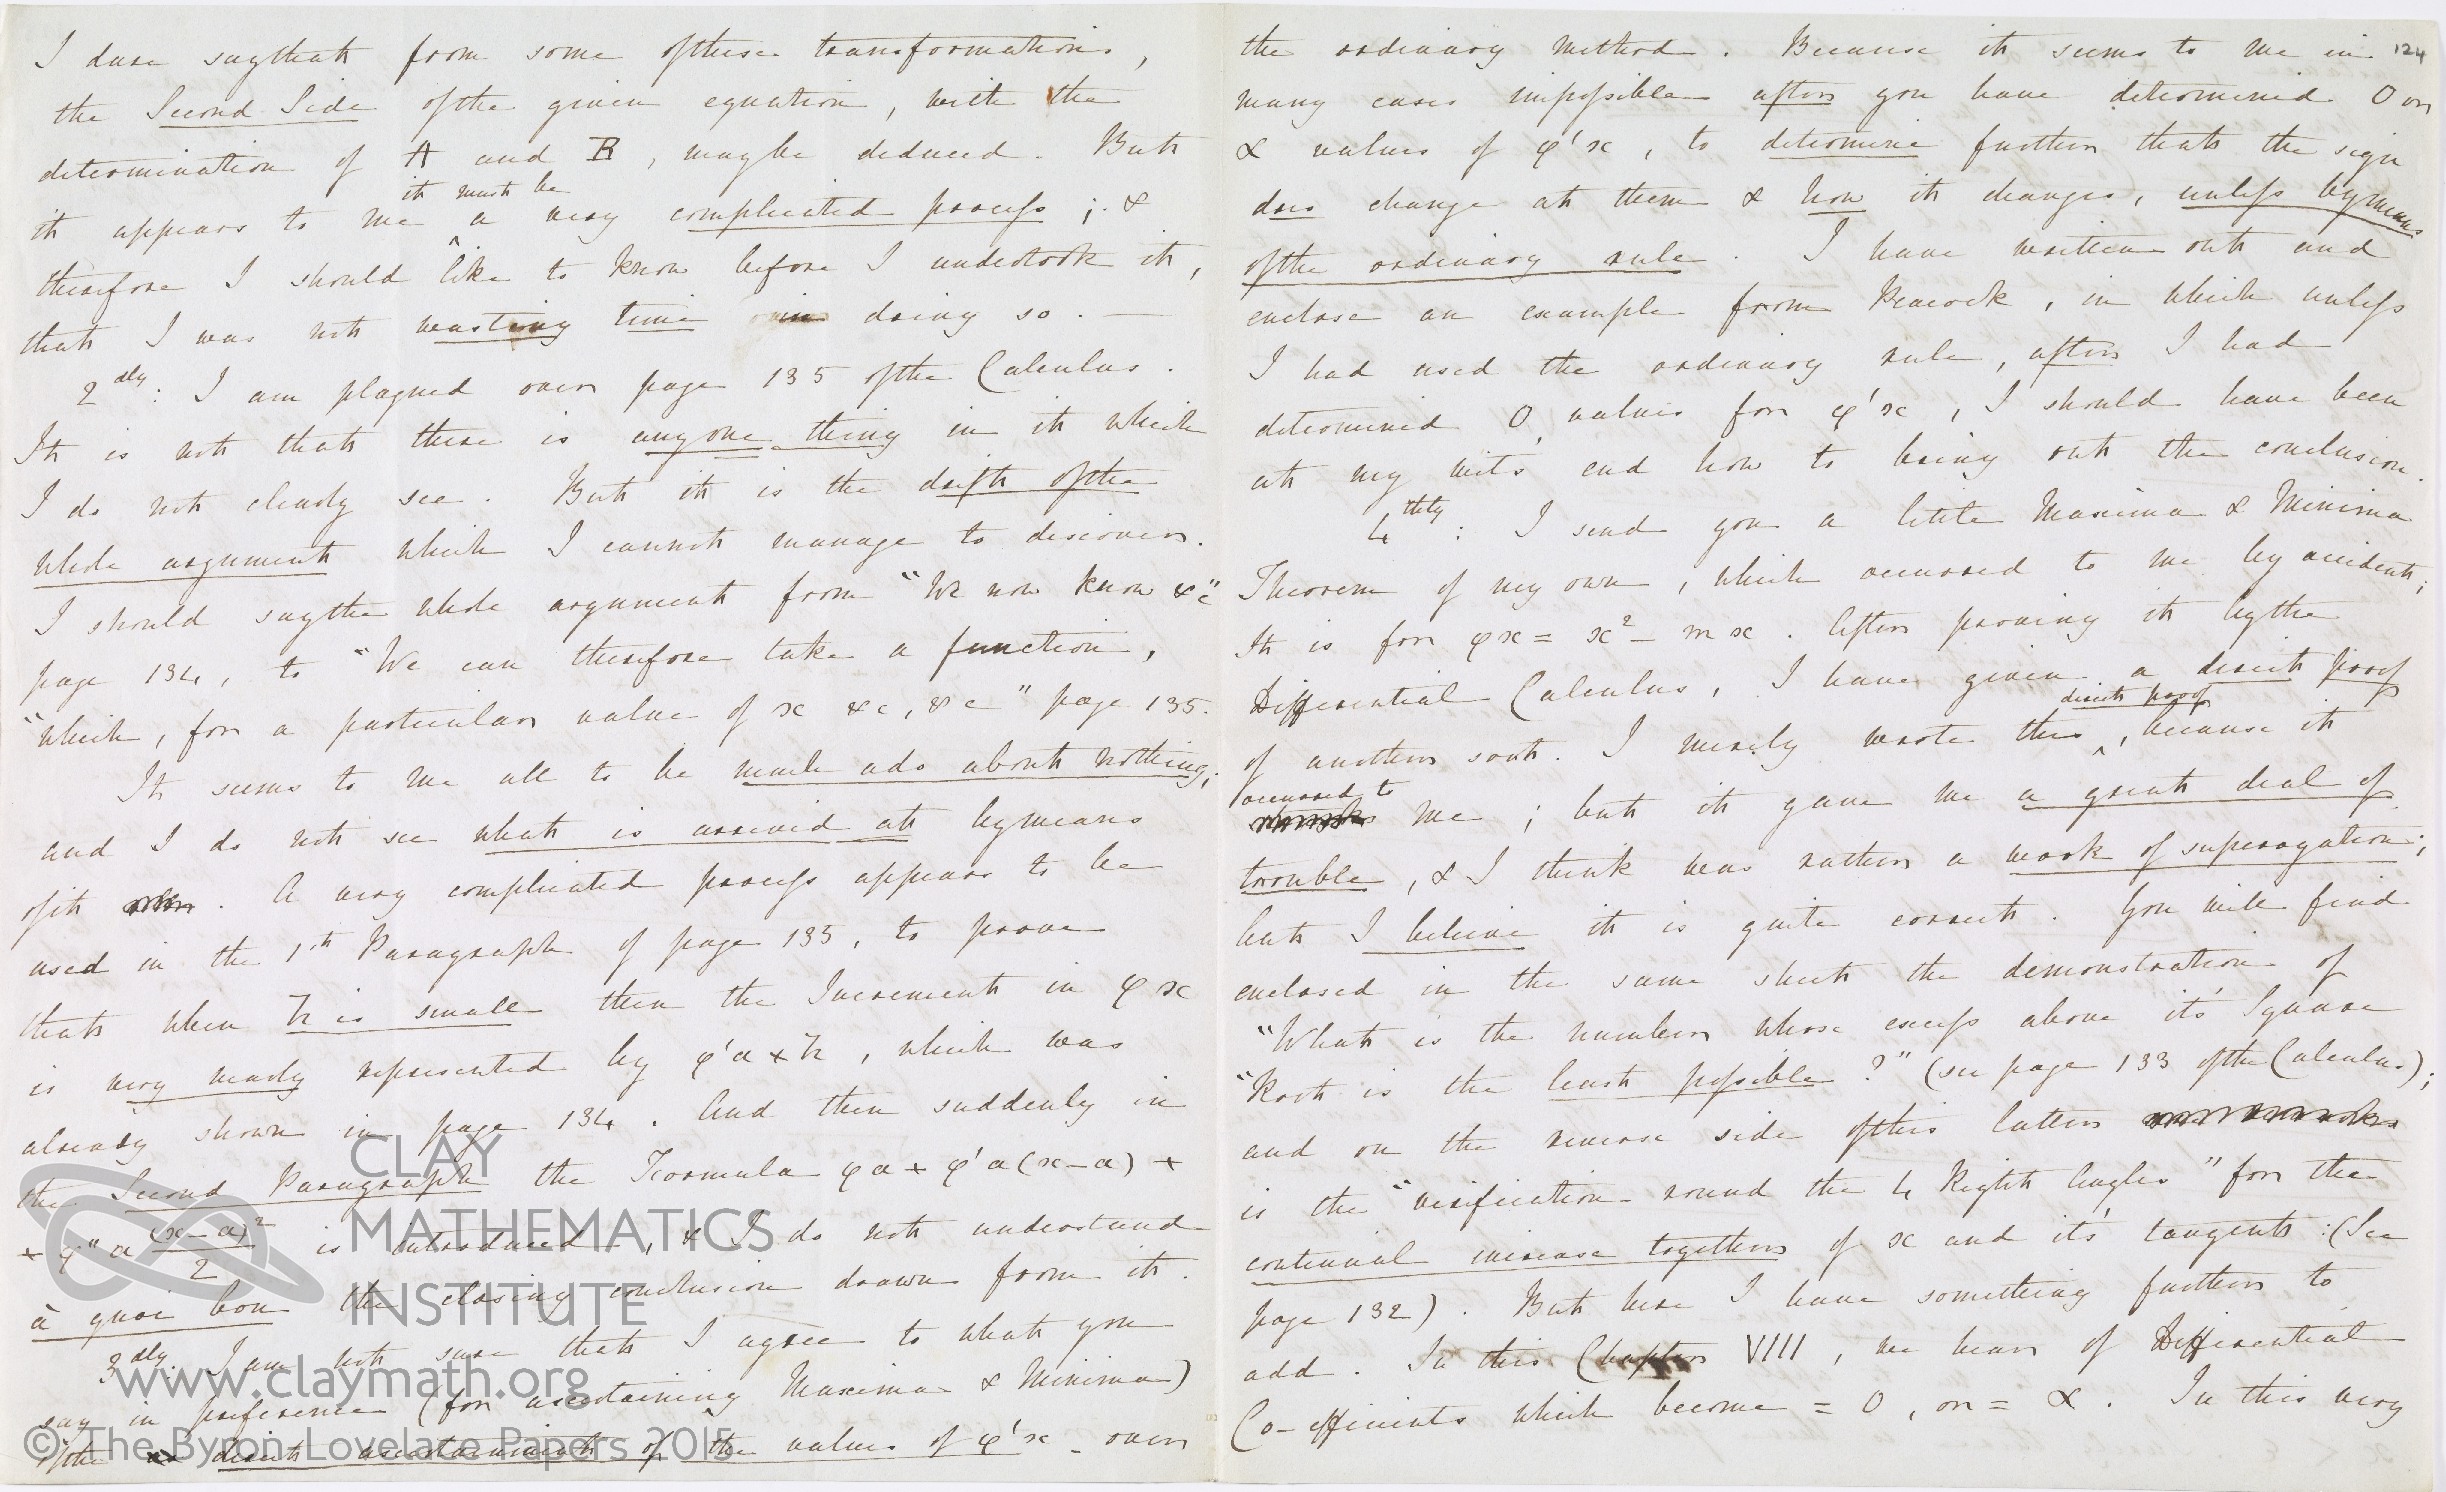 I dare say that from some of these transformations,
the Second Side of the given equation, with the
determination of A and B, may be deduced. But
it must be
it appears to me a very complicated process; &
therefore I should like to know before I undertook it,
that I was not wasting time in doing so. —
2dly: I am plagued over page 135 of the Calculus.
It is not that there is any one thing in it which
I do not clearly see. But it is the drift of the
whole argument which I cannot manage to discover.
I should say the whole argument from "We now know &c"
page 134, to "We can therefore take a function,
"which, for a particular value of x &c, &c" page 135.
It seems to me all to be much ado about nothing;
and I do not see what is arrived at by means
of it. A very complicated process appears to be
used in the 1st Paragraph of page 135, to prove
that when h is small then the Increment in φx
is very nearly represented by φ'a × h, which was
already shown in page 134. And then suddenly in
the Second Paragraph the Formula φa + φ'a(x-a) +
+ φ''a (x-a)²/2 is introduced, & I do not understand
à quoi bon the closing conclusion drawn from it.
3dly: I am not sure that I agree to what you
say in preference (for ascertaining Maxima & Minima)
of the direct ascertainment of the values of φ'x over
124
the ordinary method. Because it seems to me in
many cases impossible after you have determined 0 or
∝ values of φ'x, to determine further that the sign
does change at them & how it changes, unless by means
of the ordinary rule. I have written out and
enclose an example from Peacock, in which unless
I had used the ordinary rule, after I had
determined 0 values for φ'x, I should have been
at my wits' end how to bring out the conclusion.
4thly: I send you a little Maxima & Minima
Theorem of my own, which occurred to me by accident;
It is for φx = x² - mx. After proving it by the
Differential Calculus, I have given a direct proof
direct proof
of another sort. I merely wrote this, because it
occurred to
me; but it gave me a great deal of
trouble, & I think was rather a work of superogation;
but I believe it is quite correct. You will find
enclosed in the same sheet the demonstration of
"What is the number whose excess above it's Square
"Root is the least possible?" (see page 133 of the Calculus);
and on the reverse side of this latter
is the "verification round the 4 Right Angles" for the
continual increase together of x and it's tangent: (See
page 132). But here I have something further to
add. In this Chapter VIII, we hear of Differential
Co-efficients which become = 0, or = ∝. In this very
CLAY
MATHEMATICS
INSTITUTE
www.claymath.org
© The Byron-Lovelace Papers 2015